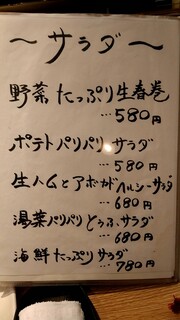 ～サラダ～
野菜たっぷり生春巻
…580円
ポテトパリパリサラダ
…580円
生ハムとアボガドヘルシーサラダ
…680円
湯葉パリパリとうふサラダ
…680円
海鮮たっぷりサラダ
…780円